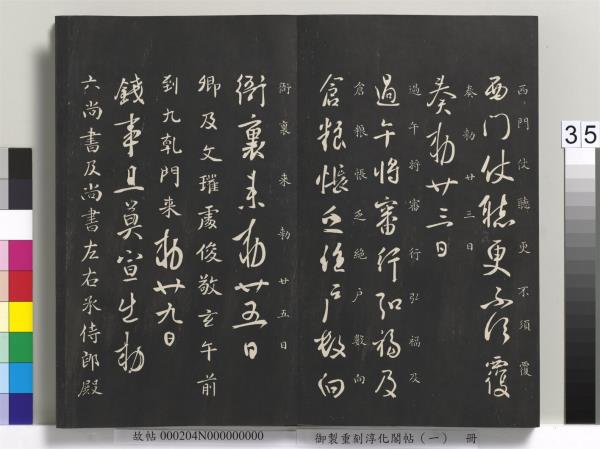 西門仗聽更不須覆
西門仗聽更不須覆
奏勅廿三日
奏勅廿三日
過午將審行弘福及
過午將審行弘福及
倉粮帳乏絕戶數向
倉粮帳乏絕戶數向
衙裏來勅廿五日
衙裏來勅廿五日
卿及文瓘處俊敬玄午前
到九乹門來勅廿九日
錢事且莫宣生勅
六尚書及尚書左右丞侍郎殿
35
故帖 000204N000000000
御製重刻淳化閣帖（一） 冊